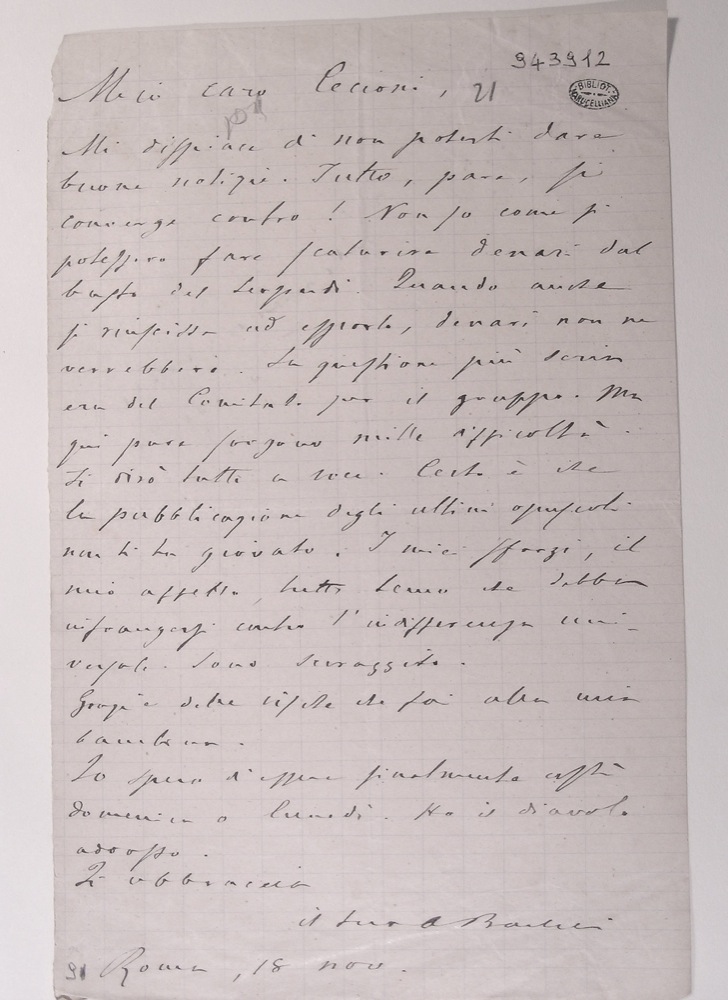 943912
BIBLIOT. MARUCELLIANA
Mio caro Cecioni, 21
Mi dispiace di non poterti dare
buone notizie. Tutto, pare, si
converge contro! Non so come si
potessero fare scaturire denari dal
busto del Leopardi. Quando anche
si riuscisse ad esporlo, denari non ne
verrebbero. La questione più seria
era del Comitato per il gruppo. Ma
qui pure sorgono mille difficoltà.
Ti dirò tutto a voce. Certo è che
la pubblicazione degli ultimi opuscoli
non ti ha giovato. I miei sforzi, il
mio affetto, tutto temo che debba
infrangersi contro l'indifferenza uni-
versale. Sono scoraggito.
Grazie delle visite che fai alla mia
bambina.
Io spero d'essere finalmente costà
domenica o lunedì. Ho il diavolo
addosso.
Ti abbraccia
il tuo A
91 Roma, 18 nov.